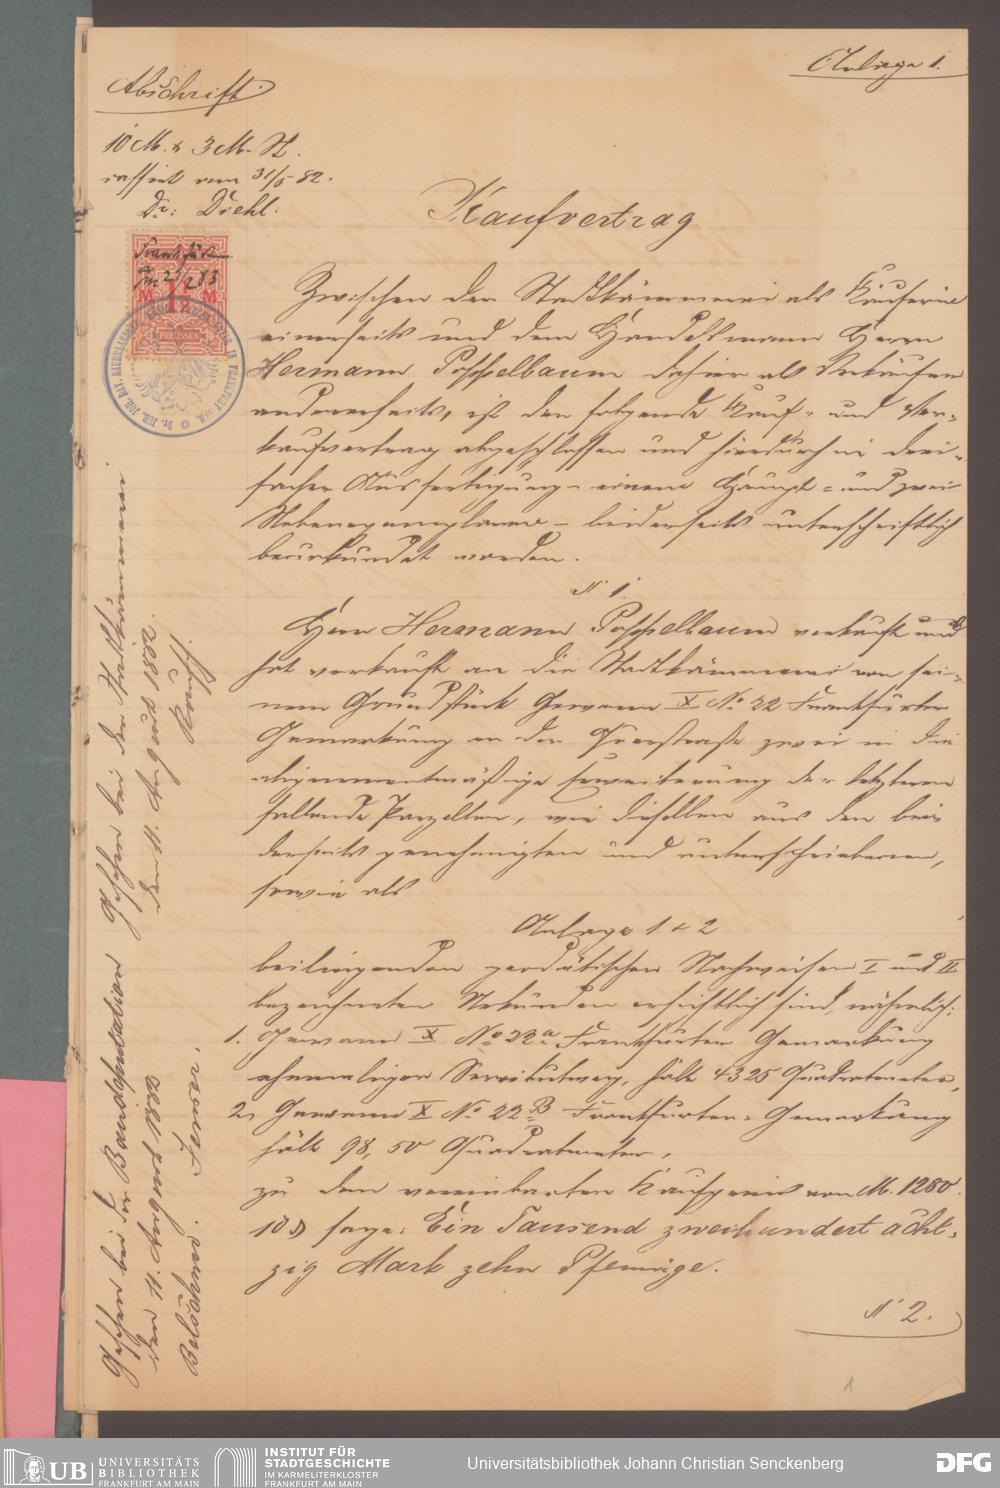 Anlage 1.
Abschrift
10 M. & 3 M. St.
cassirt am 31/5 82.
Dr: Diehl.
Kaufvertrag
Frankfurt
M 1½ M
PREUSSEN
Zwischen der Stadtkämmerei als Käuferin
einerseits und dem Handelsmann Herrn
Hermann Posselbaum dahier als Verkäufer
andererseits, ist der folgende Kauf- und Ver-
kaufvertrag abgeschlossen und hierdurch in drei-
facher Ausfertigung – einem Haupt- und zwei
Nebenexemplaren – beiderseits unterschriftlich
beurkundet worden.
№ 1.
Herr Hermann Posselbaum verkauft und
hat verkauft an die Stadtkämmerei von sei-
nem Grundstück Gewann X No. 22 Frankfurter
Gemarkung an der zwei in die
alignementmäßige Erweiterung der letzteren
fallende Parzellen, wie dieselben aus den bei-
derseits genehmigten und unterschriebenen,
sowie als
Anlage 1 & 2
beiliegenden geodätischen Nachweisen I und II
bezeichneten Urkunden ersichtlich sind, nämlich:
1. Gewann X No 22a Frankfurter Gemarkung
ehemaliger Servitutweg, hält 43 25 Quadratmeter,
2, Gewann X No. 22 B Frankfurter Gemarkung
hält 98, 50 Quadratmeter,
zu dem vereinbarten Kaufpreis von M. 1280.
10 sage: Ein Tausend zweihundert acht-
zig Mark zehn Pfennige.
№ 2.
Gesehen bei der Baudeputation
den 11. August 1882
Gesehen bei der Stadtkämmerei
den 11. August 1882.
1
UB
UNIVERSITÄTS
BIBLIOTHEK
FRANKFURT AM MAIN
INSTITUT FÜR
STADTGESCHICHTE
IM KARMELITERKLOSTER
FRANKFURT AM MAIN
Universitätsbibliothek Johann Christian Senckenberg
DFG